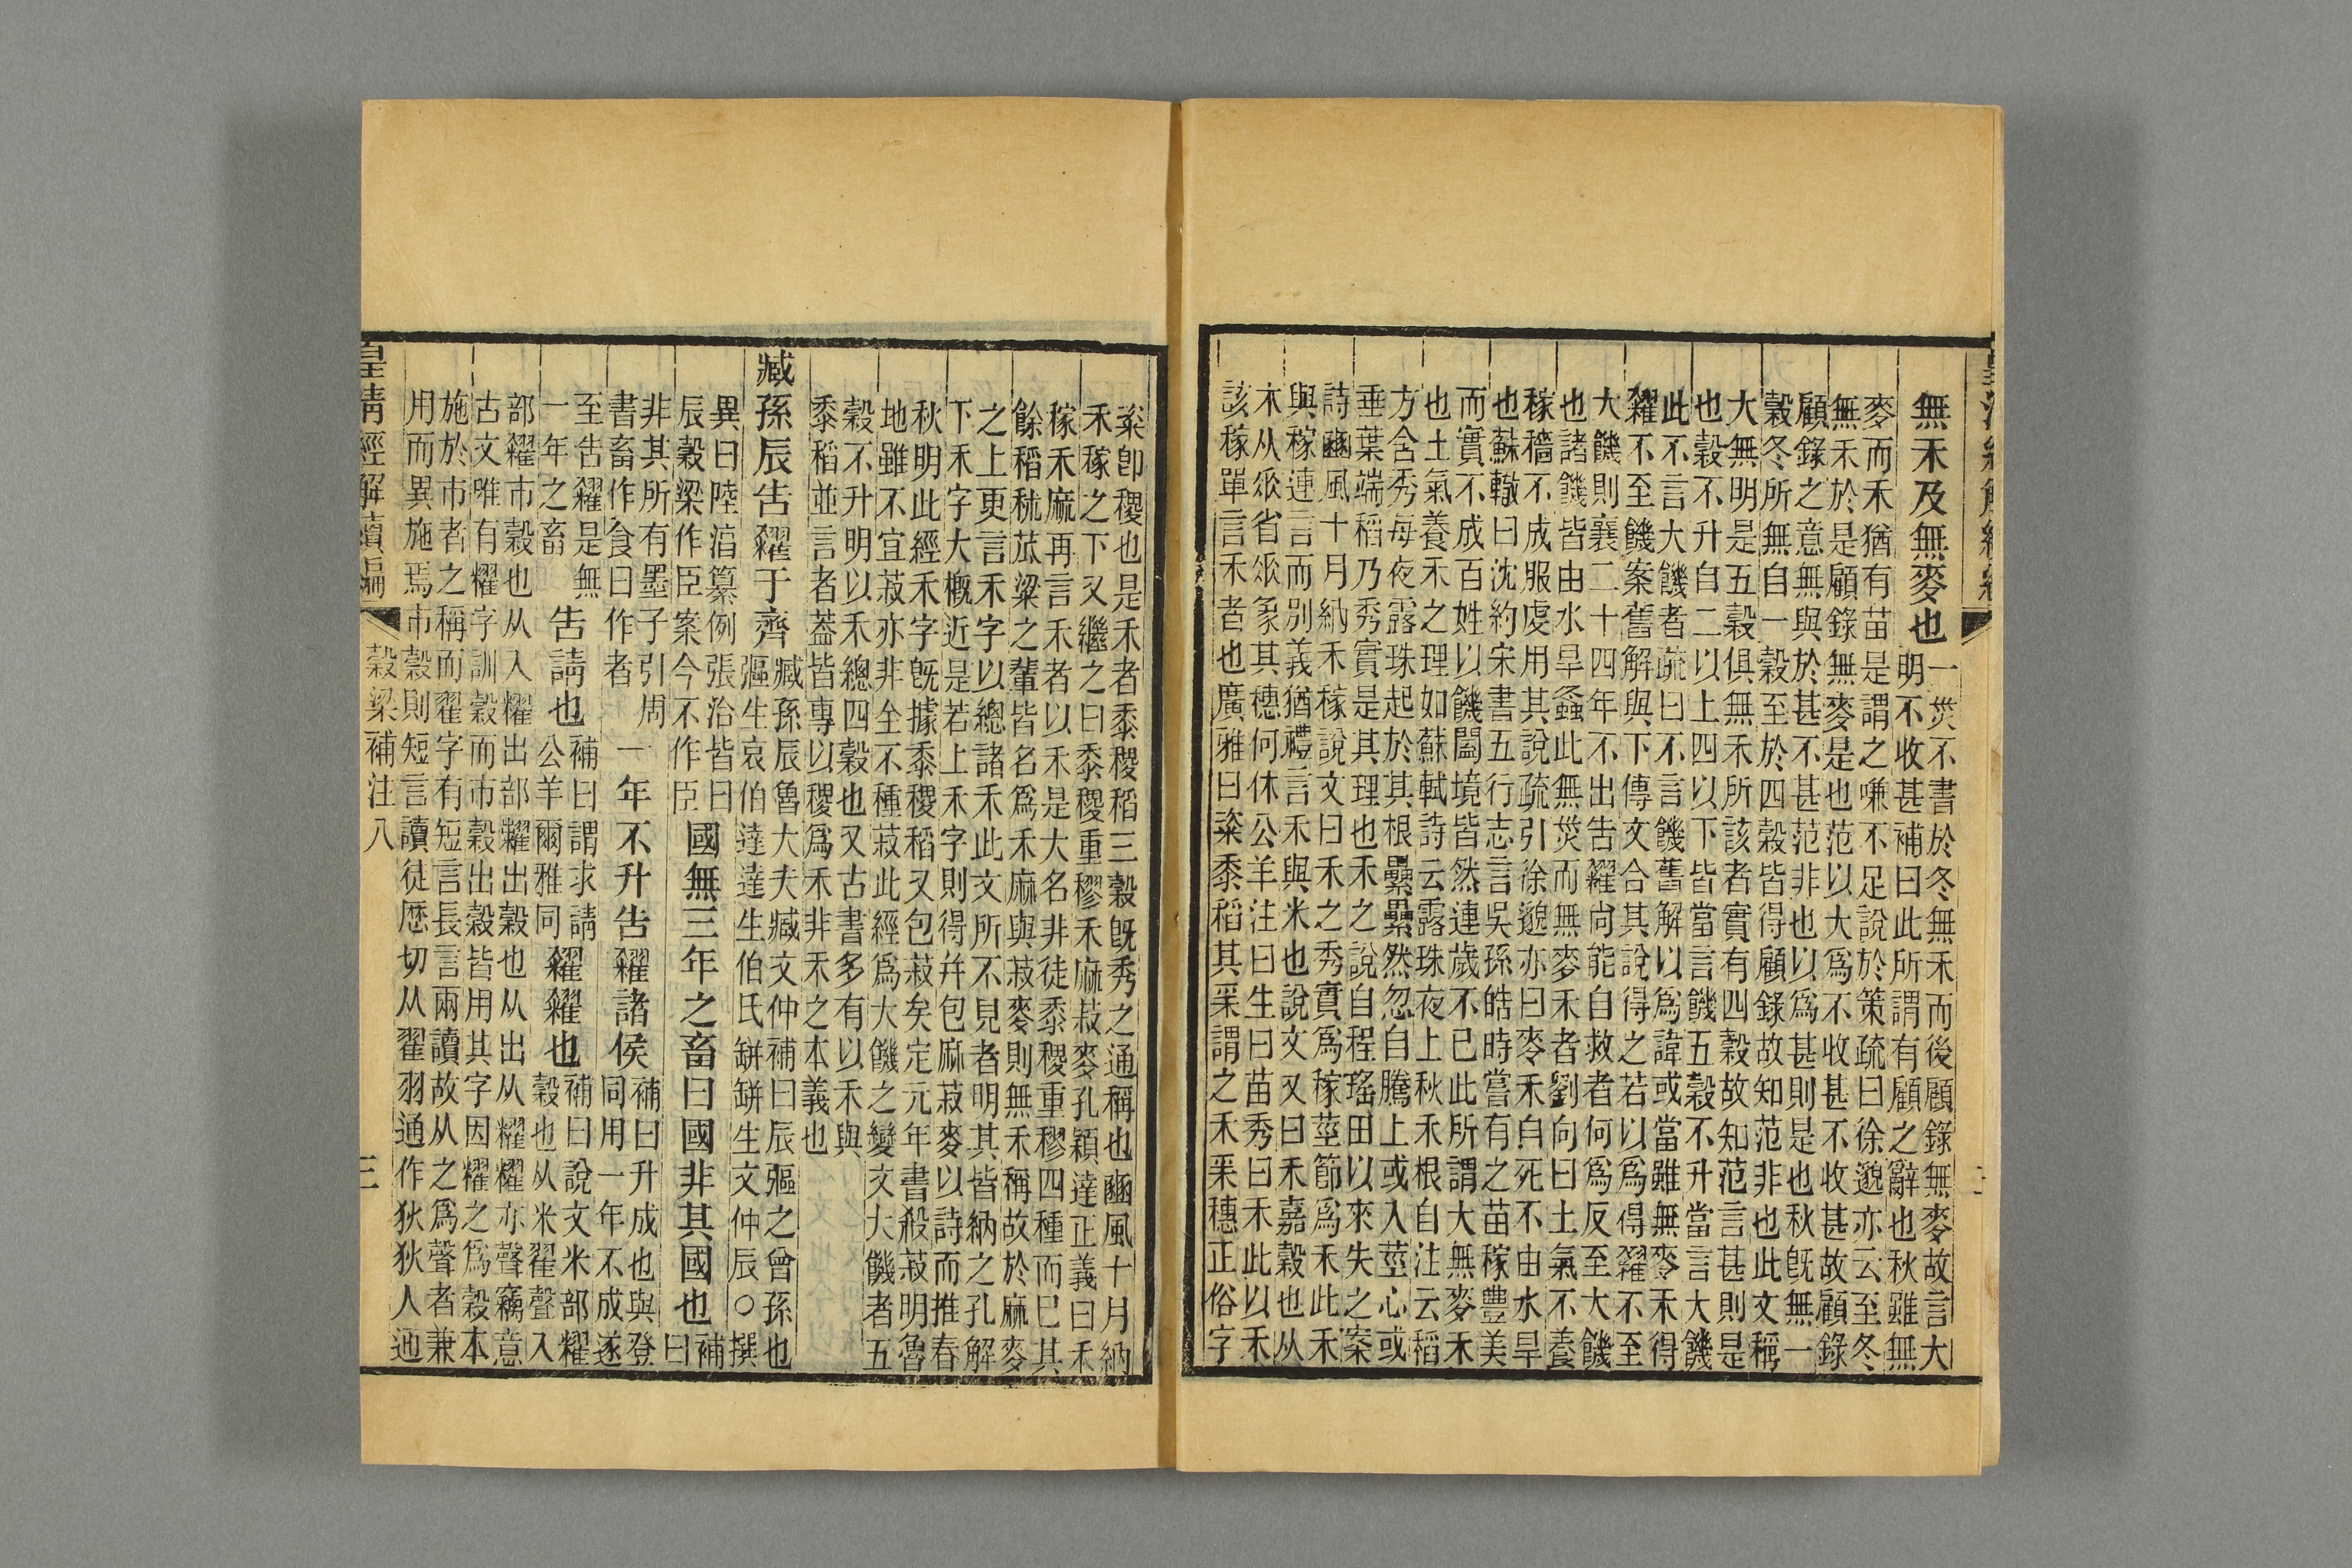 無禾及無麥也
一災不書於冬無禾而後顧錄無麥故言大
明不收甚補曰此所謂有顧之辭也秋雖無
麥而禾猶有苗是謂之嗛不足說於策疏曰徐邈亦云至冬
無禾於是顧錄無麥是也范以大爲不收甚不收甚故顧錄
顧錄之意無與於甚不甚范非也以爲甚則是也秋旣無一
穀冬所無自一穀至於四穀皆得顧錄故知范非也此文稱
大無明是五穀俱無禾所該者實有四穀故知范言甚則是
也穀不升自二以上四以下皆當言饑五穀不升當言大饑
此不言大饑者疏曰不言饑舊解以爲諱或當雖無麥禾得
糴不至饑案舊解與下傳文合其說得之若以爲得糴不至
大饑則襄二十四年不出告糴尚能自救者何爲反至大饑
也諸饑皆由水旱螽此無災而無麥禾者劉向曰土氣不養
稼穡不成服虔用其說疏引徐邈亦曰麥禾自死不由水旱
也蘇轍曰沈約宋書五行志言吳孫皓時嘗有之苗稼豐美
而實不成百姓以饑闔境皆然連歲不已此所謂大無麥禾
也土氣養禾之理如蘇軾詩云露珠夜上秋禾根自注云稻
方含秀每夜露珠起於其根纍纍然忽自騰上或入莖心或
垂葉端稻乃秀實是其理也禾之說自程瑤田以來失之案
詩豳風十月納禾稼說文曰禾之秀實爲稼莖節爲禾此禾
與稼連言而別義猶禮言禾與米也說文又曰禾嘉穀也从
木从𠂹省𠂹象其穗何休公羊注曰生曰苗秀曰禾此以禾
該稼單言禾者也廣雅曰粢黍稻其采謂之禾采穗正俗字
粢卽稷也是禾者黍稷稻三穀旣秀之通稱也豳風十月納
禾稼之下又繼之曰黍稷重穋禾麻菽麥孔穎達正義曰禾
稼禾麻再言禾者以禾是大名非徒黍稷重穋四種而已其
餘稻秫苽粱之輩皆名爲禾麻與菽麥則無禾稱故於麻麥
之上更言禾字以總諸禾此文所不見者明其皆納之孔解
下禾字大概近是若上禾字則得幷包麻菽麥以詩而推春
秋明此經禾字旣據黍稷稻又包菽矣定元年書殺菽明魯
地雖不宜菽亦非全不種菽此經爲大饑之變文大饑者五
穀不升明以禾總四穀也又古書多有以禾與
黍稻並言者蓋皆專以稷爲禾非禾之本義也
臧孫辰告糴于齊
臧孫辰魯大夫臧文仲補曰辰彄之曾孫也
彄生哀伯達達生伯氏缾缾生文仲辰○撰
異曰陸淳纂例張洽皆曰
辰穀梁作臣案今不作臣
國無三年之畜曰國非其國也
補
曰
非其所有墨子引周
書畜作食曰作者
一年不升告糴諸侯
補曰升成也與登
同用一年不成遂
至告糴是無
一年之畜
告請也
補曰謂求請
公羊爾雅同
糴糴也
補曰說文米部糴
穀也从米翟聲入
部糴市穀也从入糴出部糶出穀也从出从糴糴亦聲竊意
古文唯有糴字訓穀而市穀出穀皆用其字因糴之爲穀本
施於市者之稱而翟字有短言長言兩讀故从之爲聲者兼
用而異施焉市穀則短言讀徒歷切从翟羽通作狄狄人通
皇淸經解續編
穀梁補注八
三